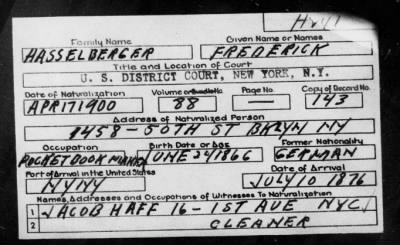 Family Name Given Name or Names
HASSELBERGER FREDERICK
Title and Location of Court
U. S. DISTRICT COURT, NEW YORK, N.Y.
Date of Naturalization Volume or Bundle No. Page No. Copy of Record No.
APR 17 1900 88 — 143
Address of Naturalized Person
1458-50TH ST BKLYN NY
Occupation Birth Date or Age Former Nationality
POCKETBOOK MAKER JUNE 24 1866 GERMAN
Port of Arrival in the United States Date of Arrival
NYNY JULY 10 1876
Names, Addresses and Occupations of Witnesses To Naturalization
1 JACOB HAFF 16-1ST AVE NYC
2 CLEANER